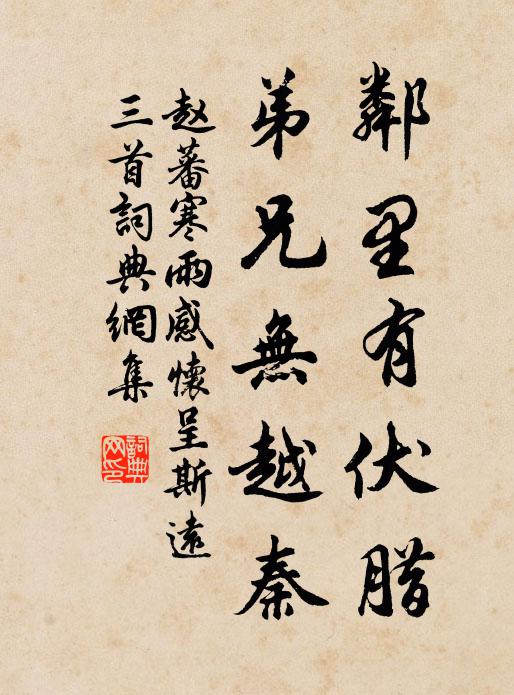 鄰里有伏腊
弟兄無越秦
赵蕃寒雨感懷呈斯遠
三首詞典網集
詞典網印